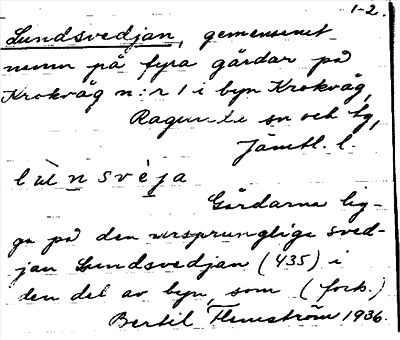 1-2.
Lundsvedjan, gemensamt
namn på fyra gårdar på
Krokväg n:r 1 i byn Krokväg,
Ragunda sn och tg,
Jämtl. l.
lùnsvèja
Gårdarna lig-
ga på den ursprungliga sved-
jan Lundsvedjan (435) i
den del av byn, som (forts.)
Bertil Flemström 1936.